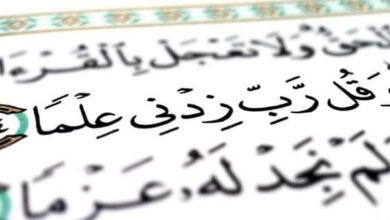 ٱلۡحَقُّۗ وَلَا تَعۡجَلۡ بِٱلۡقُرۡءَا
وَقُل رَّبِّ زِدۡنِي عِلۡمٗا
وَلَمۡ نَجِدۡ لَهُۥ عَزۡمٗا